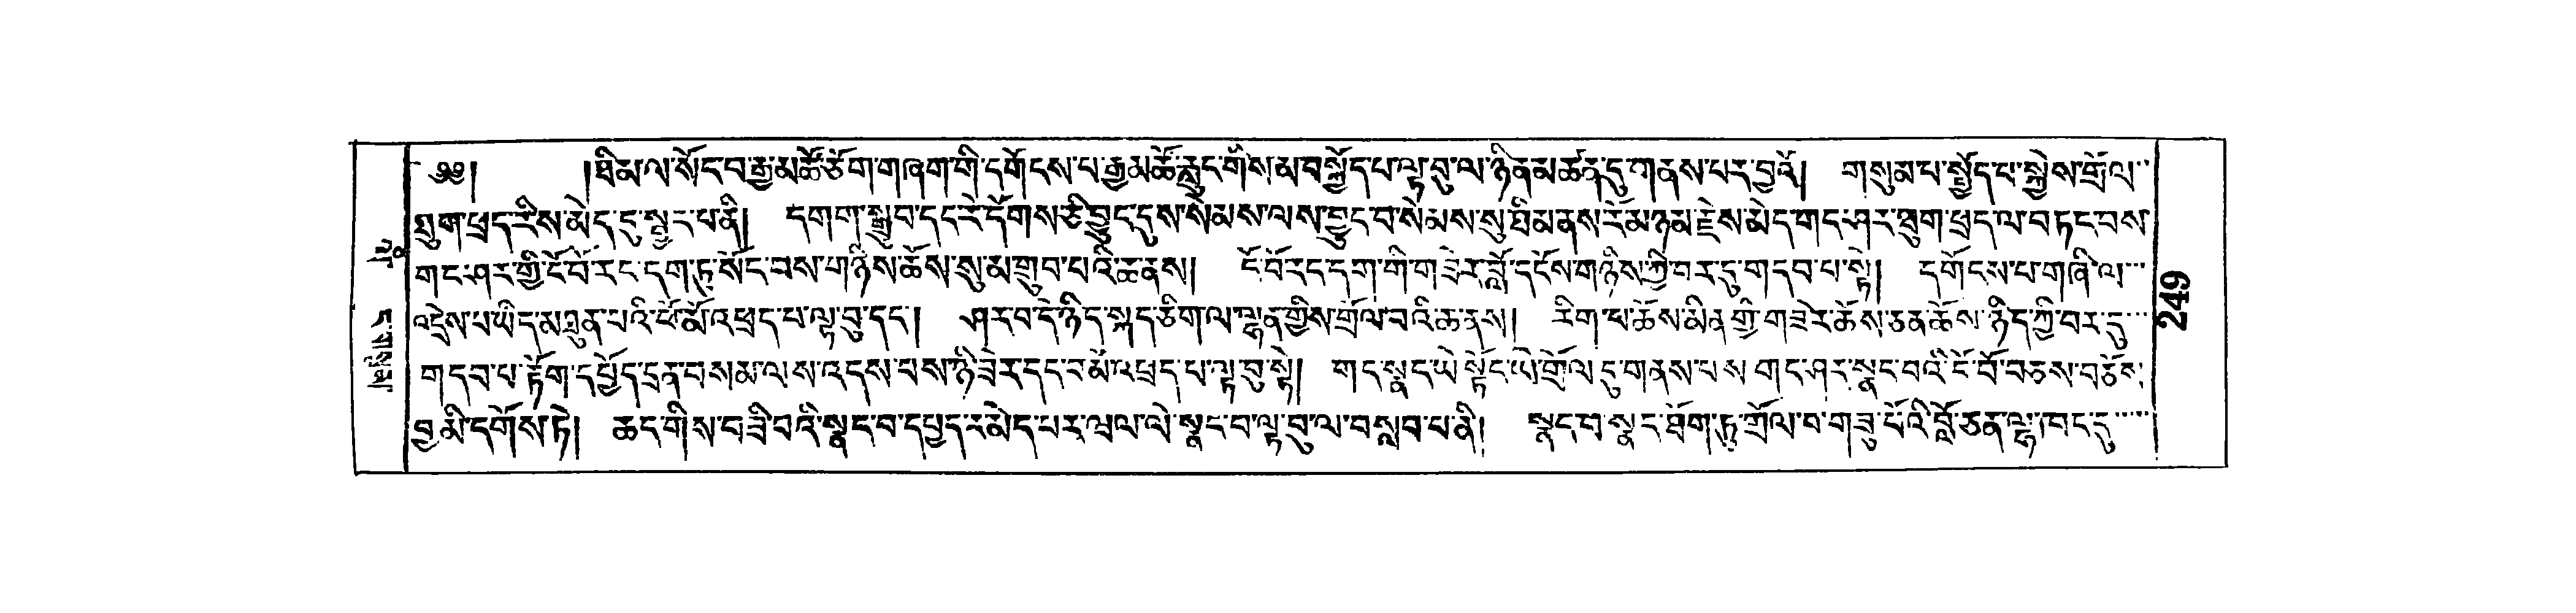 ༄༅། །ཐིམ་ལ་སོང་བ་རྒྱ་མཚོ་ཅོག་གཞག་གི་དགོངས་པ་རྒྱ་མཚོ་རླུང་གིས་མ་བསྐྱོད་པ་ལྟ་བུ་ལ་ཉིན་མཚན་དུ་གནས་པར་བྱའོ། གསུམ་པ་སྤྱོད་པ་སྐྱེས་གྲོལ་
ཐུག་ཕྲད་རིས་མེད་དུ་སྤྱར་བ་ནི། དགག་སྒྲུབ་དང་རེ་དོགས་ཅི་བྱུང་དུས་སེམས་ལས་བྱུང་བ་སེམས་སུ་ཐིམ་ནས་རོ་མཉམ་རྗེས་མེད་གང་ཤར་ཐུག་ཕྲད་ལ་བཏང་བས་
གང་ཤར་གྱི་ངོ་བོ་རང་དག་ཏུ་སོང་བས་གཉིས་ཆོས་སུ་མ་གྲུབ་པའི་ཆ་ནས། ངོ་བོ་རང་དག་གི་གཟེར་བློ་དངོས་གཉིས་ཀྱི་བར་དུ་གདབ་པ་སྟེ། དགོངས་པ་གཞི་ལ་
འདྲེས་པ་ཡིད་མཐུན་པའི་ཕོ་མོ་འཕྲད་པ་ལྟ་བུ་དང་། ཤར་བ་དེ་ཉིད་སྐད་ཅིག་ལ་ལྷན་གྱིས་གྲོལ་བའི་ཆ་ནས། རིག་པ་ཆོས་མིན་གྱི་གཟེར་ཆོས་ཅན་ཆོས་ཉིད་ཀྱི་བར་དུ་
གདབ་པ་རྟོག་དཔྱོད་དྲན་བསམ་ལས་འདས་པས་ཉི་ཟེར་དང་ཁ་མོ་འཕྲད་པ་ལྟ་བུ་སྟེ། གང་སྣང་ཡེ་སྟོང་ཡེ་གྲོལ་དུ་གནས་པས་གང་ཤར་སྣང་བའི་ངོ་བོ་བཅས་བཅོས་
བྱ་མི་དགོས་ཏེ། ཆང་གིས་བཟི་བའི་སྣང་བ་དཔྱད་ར་མེད་པར་ཝལ་ལེ་སྣང་བ་ལྟ་བུ་ལ་བསླབ་པ་ནི། སྣང་བ་སྣང་ཐོག་ཏུ་གྲོལ་བ་གཟུ་བོའི་བློ་ཅན་ལྟ་
249